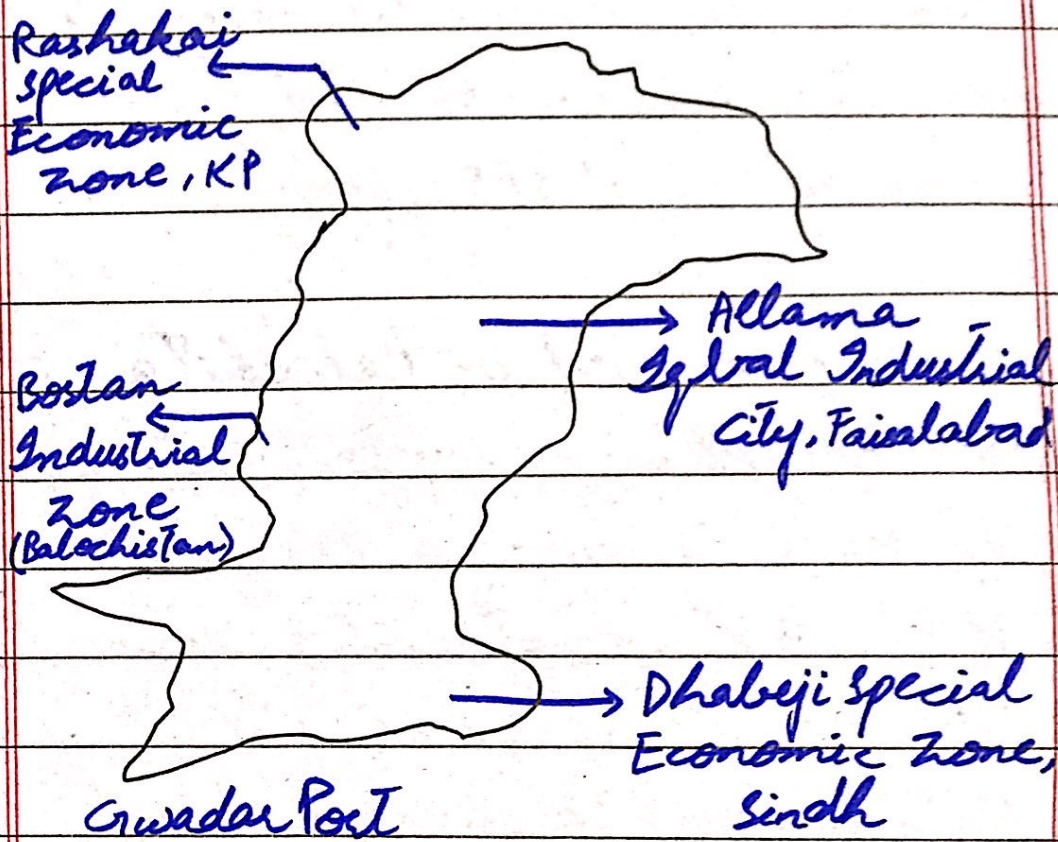 Rashakai
special
Economic
zone, KP
Allama
Iqbal Industrial
City, Faisalabad
Bostan
Industrial
zone
(Balochistan)
Dhabeji special
Economic zone,
sindh
Gwadar Port